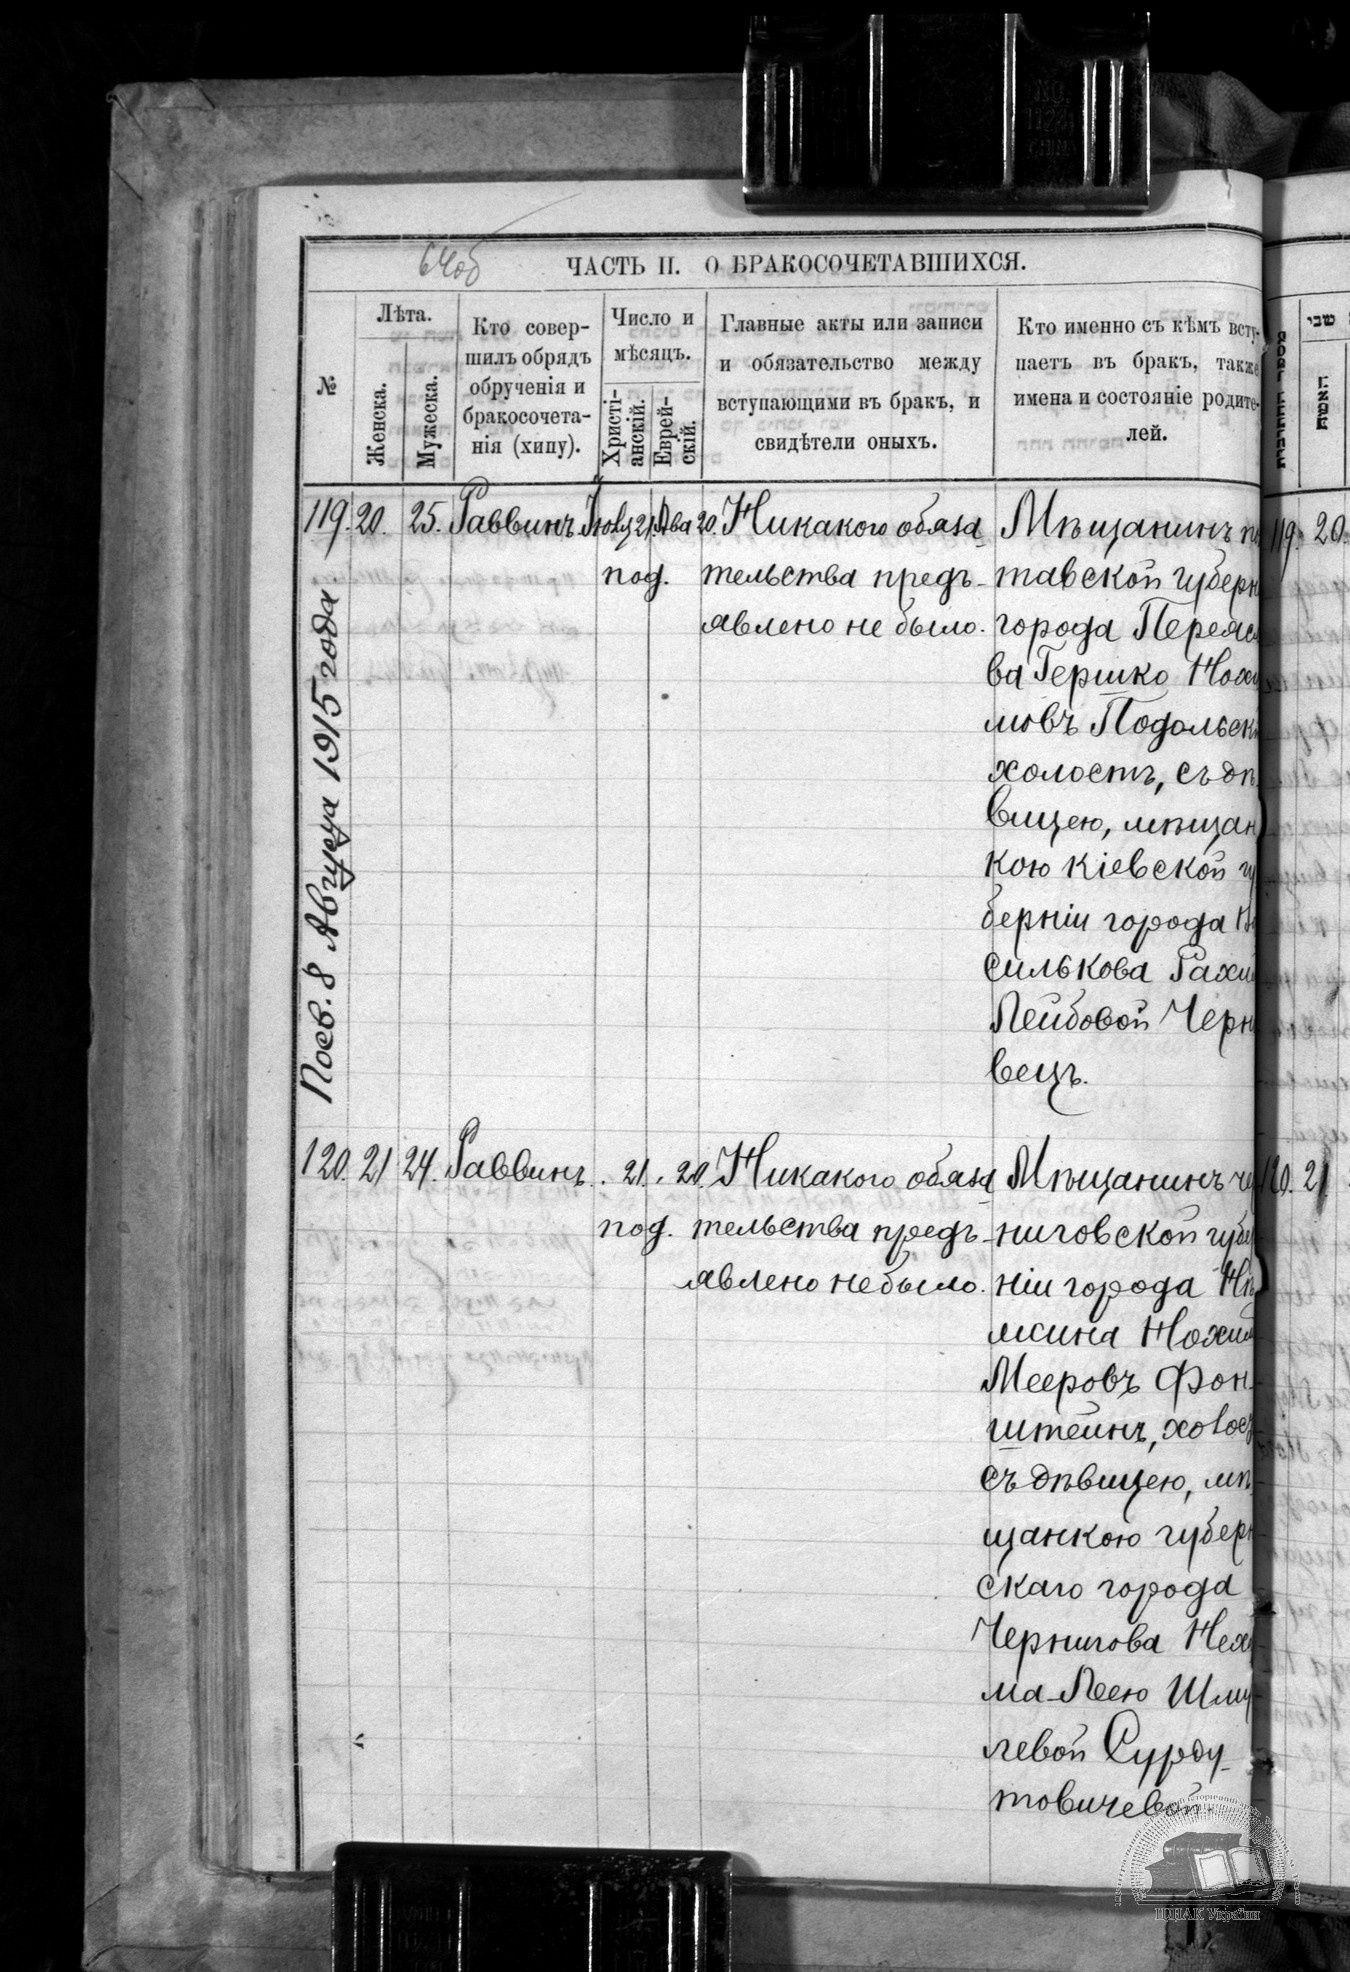 64об
ЧАСТЬ II. О БРАКОСОЧЕТАВШИХСЯ.
№
Лѣта.
Женска.
Мужеска.
Кто совер-
шилъ обрядъ
обрученія и
бракосочета-
нія (хипу).
Число и
мѣсяцъ.
Христі-
анскій.
Еврей-
скій.
Главные акты или записи
и обязательство между
вступающими въ бракъ, и
свидѣтели оныхъ.
Кто именно съ кѣмъ всту-
паетъ въ бракъ, также
имена и состояніе родите-
лей.
שבי
האשה
119. 20. 25. Раввинъ. 21. Ава 20. Никакого обяза
под.
тельства предъ-
явлено не было.
Мѣщанинъ по
тавской губерн
города Переясл
ва Гершко Нохи
мовъ Подольск
холостъ, съ дѣ
вицею, мѣщан
кою кіевской гу
берніи города Ва
силькова Рахи
Лейбовой Черн
вецъ.
Пов. 8 Августа 1915 года
120. 21 24. Раввинъ. 21. 20. Никакого обяза
под.
тельства предъ-
явлено не было.
Мѣщанинъ чер
ниговской губе
ніи города Нѣ
жина Нохим
Мееровъ Фон-
штейнъ, холос
съ дѣвицею, мѣ
щанкою губерн
скаго города
Чернигова Неха
ма-Леею Шму
левой Сурду-
товичевой.
119. 20.
120. 21
ЦДІАК України